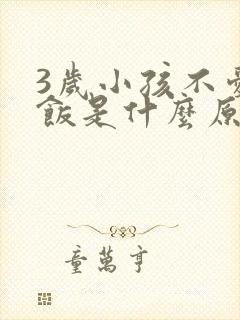 3歲小孩不
飯是什麼原
童萬亨